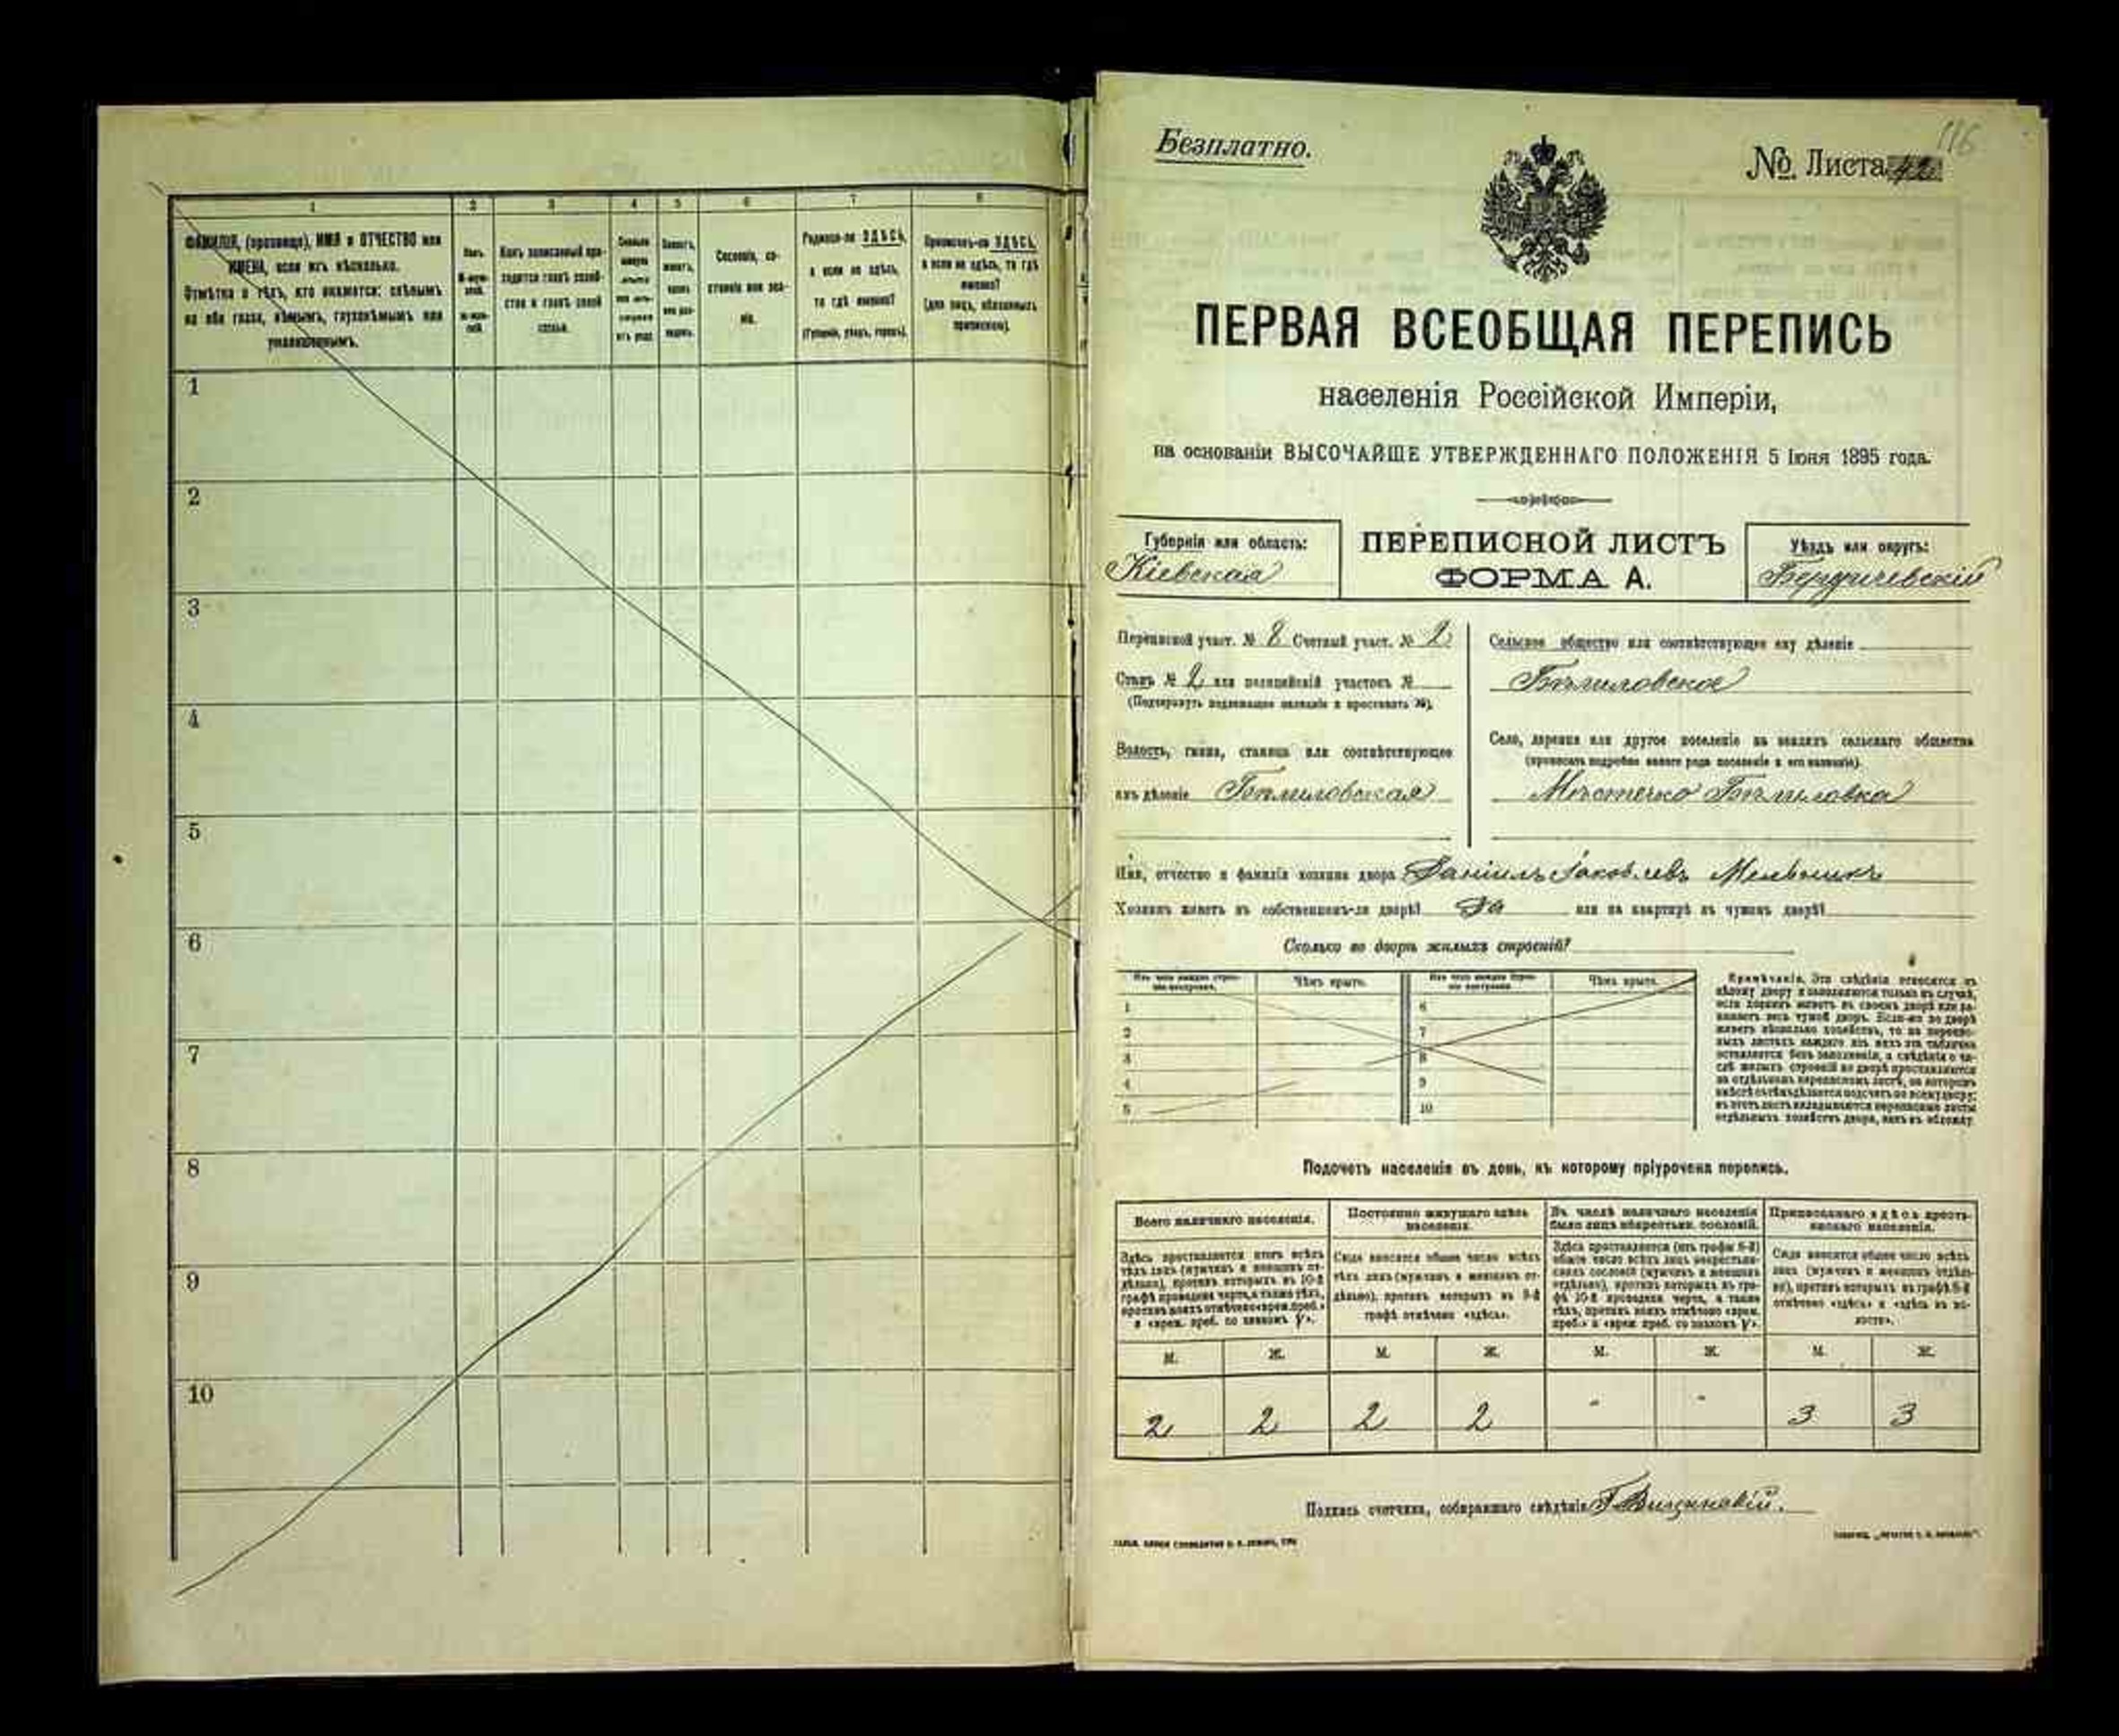 1 2 3 4 5 6 7 8
ФАМИЛІЯ, (прозвище), ИМЯ и ОТЧЕСТВО или
ИМЕНА, если ихъ нѣсколько.
Отмѣтка о тѣхъ, кто окажется: слѣпымъ
на оба глаза, нѣмымъ, глухонѣмымъ или
умалишеннымъ.
Какъ записанный при-
ходится главѣ хозяй-
ства и главѣ своей
семьи.
Сословіе, со-
стояніе или зва-
ніе.
Родился-ли ЗДѢСЬ,
а если не здѣсь,
то гдѣ именно?
(Губернія, уѣздъ, городъ).
Приписанъ-ли ЗДѢСЬ,
а если не здѣсь, то гдѣ
именно?
(для лицъ, обязанныхъ
припискою).
1
2
3
4
5
6
7
8
9
10
116
Безплатно.
№ Листа 42
ПЕРВАЯ ВСЕОБЩАЯ ПЕРЕПИСЬ
населенія Россійской Имперіи,
на основаніи ВЫСОЧАЙШЕ УТВЕРЖДЕННАГО ПОЛОЖЕНІЯ 5 Іюня 1895 года.
Губернія или область:
Кіевская
ПЕРЕПИСНОЙ ЛИСТЪ
ФОРМА А.
Уѣздъ или округъ:
Бердичевскій
Переписной участ. № 8 Счетный участ. № 2
Станъ № 2 или полицейскій участокъ №
(Подчеркнуть подлежащее названіе и проставить №).
Волость, гмина, станица или соотвѣтствующее
имъ дѣленіе Бѣлиловская
Сельское общество или соотвѣтствующее ему дѣленіе
Бѣлиловское
Село, деревня или другое поселеніе на земляхъ сельскаго общества
(прописать подробно какого рода поселеніе и его названіе).
Мѣстечко Бѣлиловка
Имя, отчество и фамилія хозяина двора Даніилъ Яковлевъ Мельникъ
Хозяинъ живетъ въ собственномъ-ли дворѣ? Да или на квартирѣ въ чужомъ дворѣ?
Сколько во дворѣ жилыхъ строеній?
Изъ чего каждое строе-
ніе построено.
Чѣмъ крыто.
Изъ чего каждое строе-
ніе построено.
Чѣмъ крыто.
1 6
2 7
3 8
4 9
5 10
Примѣчаніе. Эти свѣдѣнія относятся къ
цѣлому двору и заполняются только въ случаѣ,
если хозяинъ живетъ въ своемъ дворѣ или за-
нимаетъ весь чужой дворъ. Если-же во дворѣ
живетъ нѣсколько хозяйствъ, то на перепис-
ныхъ листахъ каждаго изъ нихъ эта табличка
оставляется безъ заполненія, а свѣдѣнія о чи-
слѣ жилыхъ строеній во дворѣ проставляются
на отдѣльномъ переписномъ листѣ, на которомъ
вмѣстѣ съ тѣмъ дѣлается подсчетъ по всему двору;
въ этотъ листъ вкладываются переписные листы
отдѣльныхъ хозяйствъ двора, какъ въ обложку.
Подсчетъ населенія въ день, къ которому пріурочена перепись.
Всего наличнаго населенія.
Здѣсь проставляется итогъ всѣхъ
тѣхъ лицъ (мужчинъ и женщинъ от-
дѣльно), противъ которыхъ въ 10-й
графѣ проведена черта, а также тѣхъ,
противъ коихъ отмѣчено «врем. преб.»
и «врем. преб. со знакомъ V».
Постоянно живущаго здѣсь
населенія.
Сюда вносится общее число всѣхъ
тѣхъ лицъ (мужчинъ и женщинъ от-
дѣльно), противъ которыхъ въ 9-й
графѣ отмѣчено «здѣсь».
Въ числѣ наличнаго населенія
было лицъ некрестьян. сословій.
Здѣсь проставляется (изъ графы 6-й)
общее число всѣхъ лицъ некрестьян-
скихъ сословій (мужчинъ и женщинъ
отдѣльно), противъ которыхъ въ гра-
фѣ 10-й проведена черта, а также
тѣхъ, противъ коихъ отмѣчено «врем.
преб.» и «врем. преб. со знакомъ V».
Приписаннаго здѣсь кресть-
янскаго населенія.
Сюда вносится общее число всѣхъ
лицъ (мужчинъ и женщинъ отдѣль-
но), противъ которыхъ въ графѣ 8-й
отмѣчено «здѣсь» и «здѣсь въ во-
лости».
М. Ж. М. Ж. М. Ж. М. Ж.
2 2 2 2 - - 3 3
Подпись счетчика, собиравшаго свѣдѣнія